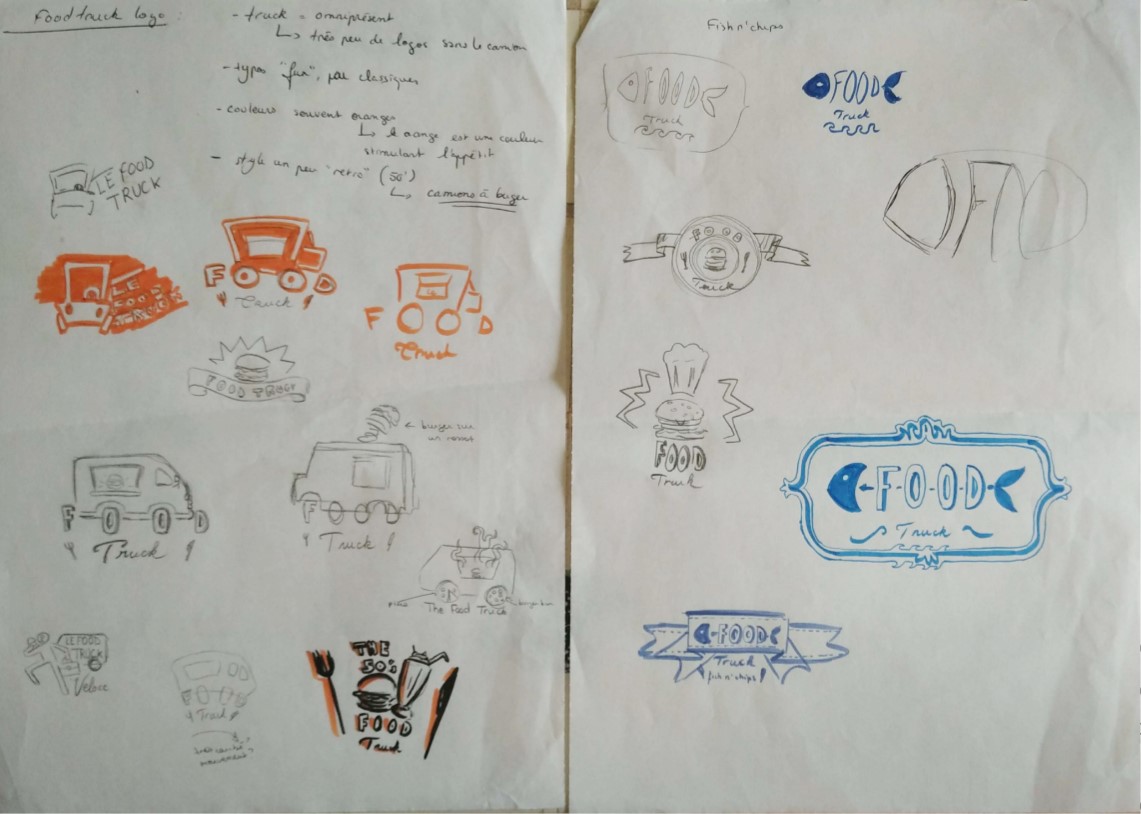 Food truck logo :
- truck = omniprésent
↳ très peu de logos sans le camion
- typos "fun", peu classiques
- couleurs souvent oranges
↳ le orange est une couleur
stimulant l'appétit
- style un peu "retro" (50')
↳ camions à burger
LE FOOD
TRUCK
LE
FOOD
FOOD
Truck
FOOD
Truck
FOOD TRUCK
← burger sur
un ressort
FOOD
Truck
FOOD
Truck
The Food Truck
LE FOOD
TRUCK
Veloce
FOOD
Truck
THE
50's
FOOD
Truck
Fish n' chips
FOOD
Truck
FOOD
Truck
FOO
FOOD
Truck
FOOD
Truck
FOOD
Truck
FOOD
Truck
fish n' chips